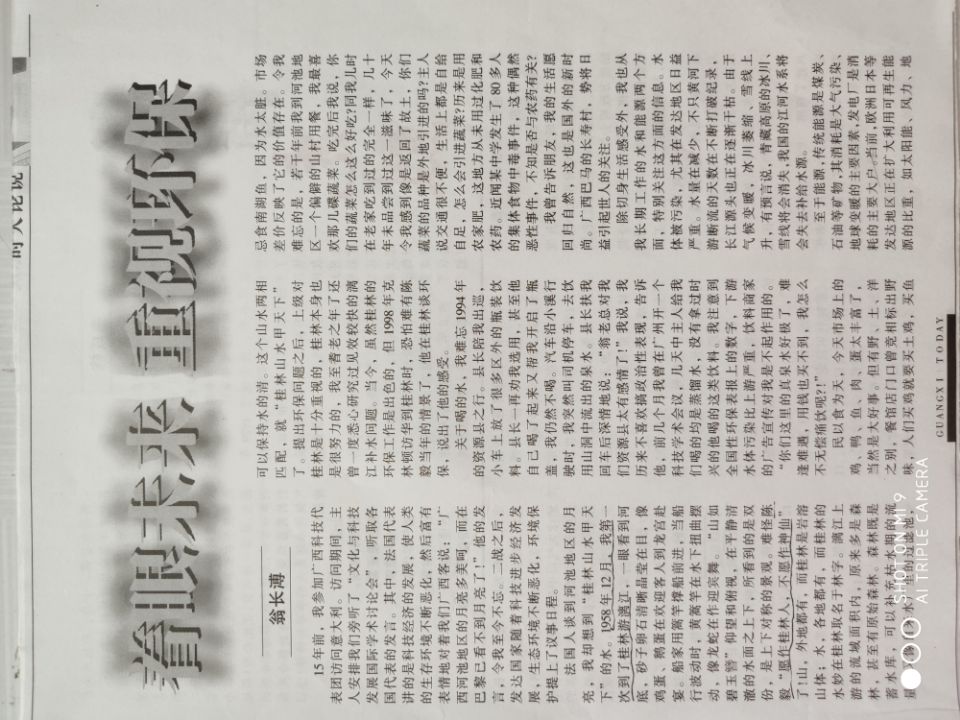 着眼未来 重视环保
翁长溥
15年前，我参加广西科技代
表团访问意大利。访问期间，主
人安排我们旁听了“文化与科技
发展国际学术讨论会”，听取各
国代表的发言。其中，法国代表
讲的是科技经济的发展，使人类
的生存环境不断恶化，然后富有
表情地对着我们广西客说：“广
西河池地区的月亮多美呵，而在
巴黎已看不到月亮了！”他的发
言，令我至今不忘。二战之后，
发达国家随着科技进步经济发
展，生态环境不断恶化，环境保
护提上了议事日程。
法国人谈到河池地区的月
亮，我却想到“桂林山水甲天
下”的水。1958年12月，我第一
次到了桂林游漓江，一眼看到河
底，砂子卵石清晰晶莹在目，像
鸡蛋、鹅蛋在欢迎客人到龙宫赴
宴。船家用篙竿撑船前进，当船
行波动时，黄篙竿在水下扭曲摆
动，像龙蛇在作迎宾舞。“山如
碧玉簪”仰望和俯视，在平静清
澈的水面之上下，所看到的是双
份，是上下对称的景观。难怪陈
毅“愿作桂林人，不愿作神仙”
了!山，外地都有，而桂林是岩溶
山体；水，各地都有，而桂林的
水妙在桂林取名于林字。漓江上
游的流域面积内，原来多是森
林，甚至有原始森林。森林既是
蓄水库，可以补充枯水期的流
可以保持水的清。这个山水两相
匹配，就“桂林山水甲天下”
了。提出环保问题之后，上级对
桂林是十分重视的，桂林本身也
是很努力的，我至耆老之年了还
曾一度悉心研究过见效较快的漓
江补水问题。当今，虽然桂林的
环保工作是出色的，但1998年克
林顿访华到桂林时，恐怕难有陈
毅当年的情景了，他在桂林谈环
保，说出了他的感受。
关于喝的水，我难忘1994年
的资源县之行。县长陪我出巡，
小车上放了很多区外的瓶装饮
料。县长一再劝我选用，甚至他
自己喝了起来又帮我开启了瓶
盖，我仍然不喝。汽车沿小溪行
驶时，我突然叫司机停车，去饮
用山洞中流出的泉水。县长待我
回车后深情地说：“翁老总对我
们资源县太有感情了！”我说，我
历来不喜欢搞政治性表现，告诉
他，前几个月我曾在广州开一个
科技学术会议，几天中主人给我
们喝的均是蒸馏水，没有拿过时
兴的他喝的这类饮料。我注意到
全国性环保表报上的数字，下游
水体污染比上游严重，饮料商家
的广告宣传对我是不起作用的。
“你们这里的真泉水好极了，难
逢难遇，用钱也买不到，我怎么
不无偿痛饮呢?!”
民以食为天，今天市场上的
鸡、鸭、鱼、肉、蛋太丰富了，
当然是大好事。但有野、土、洋
之别，餐馆店门口曾竞相标出野
味，人们买鸡就要买土鸡，买鱼
忌食南湖鱼，因为水太脏。市场
差价反映了它的价值存在。令我
难忘的是，若干年前我到河池地
区一个偏僻的山村用餐，我最喜
欢那几碟蔬菜。吃完后我说，你
们的蔬菜怎么这么好吃?同我儿时
在老家吃到过的完全一样，几十
年未品尝到过这一滋味了，今天
令我感到像是返回了故土，你们
蔬菜的品种是外地引进的吗?主人
说交通很不便，生活上都是自给
自足，怎么会引进蔬菜?历来是用
农家肥，这地方从未用过化肥和
农药。近闻某中学发生了80多人
的集体食物中毒事件，这种偶然
恶性事件，不知是否与农药有关?
我曾告诉朋友，我的生活愿
回归自然，这也是国外的新时
尚。广西巴马的长寿村，势将日
益引起世人的关注。
除切身生活感受外，我也从
我长期工作的水和能源两个方
面，特别关注这方面的信息。水
体被污染，尤其在发达地区日益
严重。水量在减少，不只黄河下
游断流的天数在不断打破纪录，
长江源头也正在逐渐干枯。由于
气候变暖，冰川萎缩、雪线上
升，有预言说，青藏高原的冰川、
雪线将会消失,我国的江河水系将
会失去补给水源。
至于能源，传统能源是煤炭、
石油等矿物,其消耗是大气污染、
地球变暖的主要因素,发电厂是消
耗的主要大户。当前,欧洲日本等
发达地区正在扩大利用可再生能
源的比重，如太阳能、风力、地
GUANGXI·TODAY
SHOT ON MI 9
AI TRIPLE CAMERA